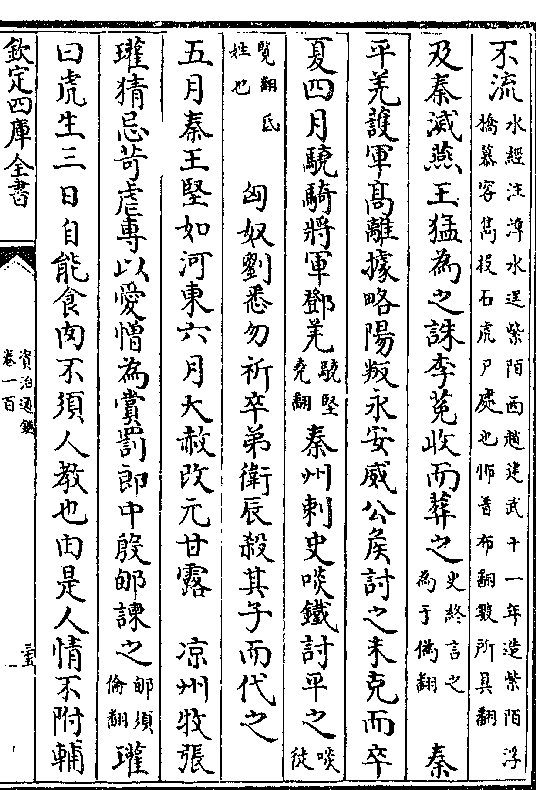 不流水經注漳水逕紫陌西趙建武十一年造紫陌浮橋慕容雋投石虎尸處也怖普布翻數所具翻
及秦滅燕王猛為之誅李菟收而葬之史終言之為于偽翻　秦
平羌護軍髙離據略陽叛永安威公侯討之未克而卒
夏四月驍騎將軍鄧羌驍堅堯翻秦州刺史啖鐵討平之啖徒
覽翻氐姓也　匈奴劉悉勿祈卒弟衛辰殺其子而代之
五月秦王堅如河東六月大赦改元甘露　凉州牧張
瓘猜忌苛虐專以愛憎為賞罰郎中殷郇諫之郇須倫翻瓘
曰虎生三日自能食肉不須人教也由是人情不附輔
欽定四庫全書
資治通鑑
卷一百